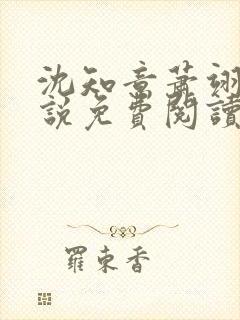 沈知意蕭翊
說免費閱讀
羅東香